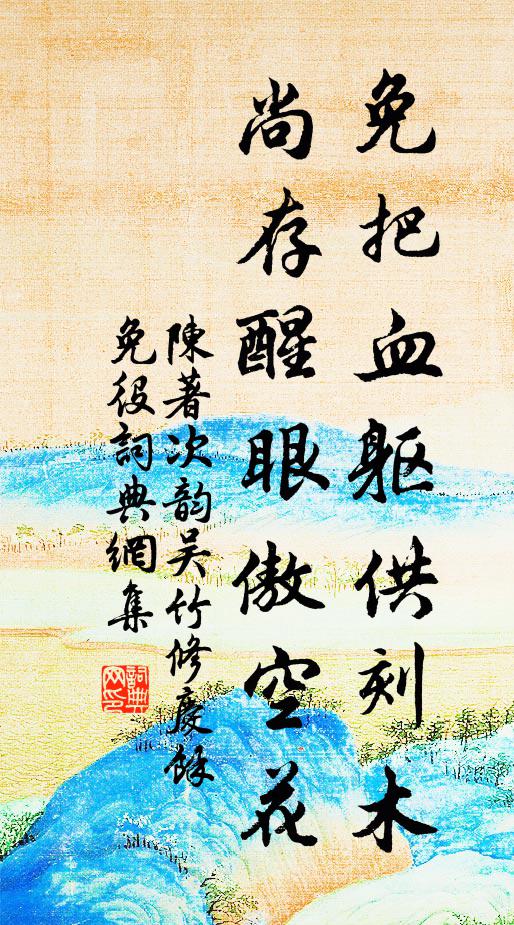 免把血躯供刻木
尚存醒眼傲空花
陳著次韵吴竹修慶餘
免役詞典網集
詞典
网印